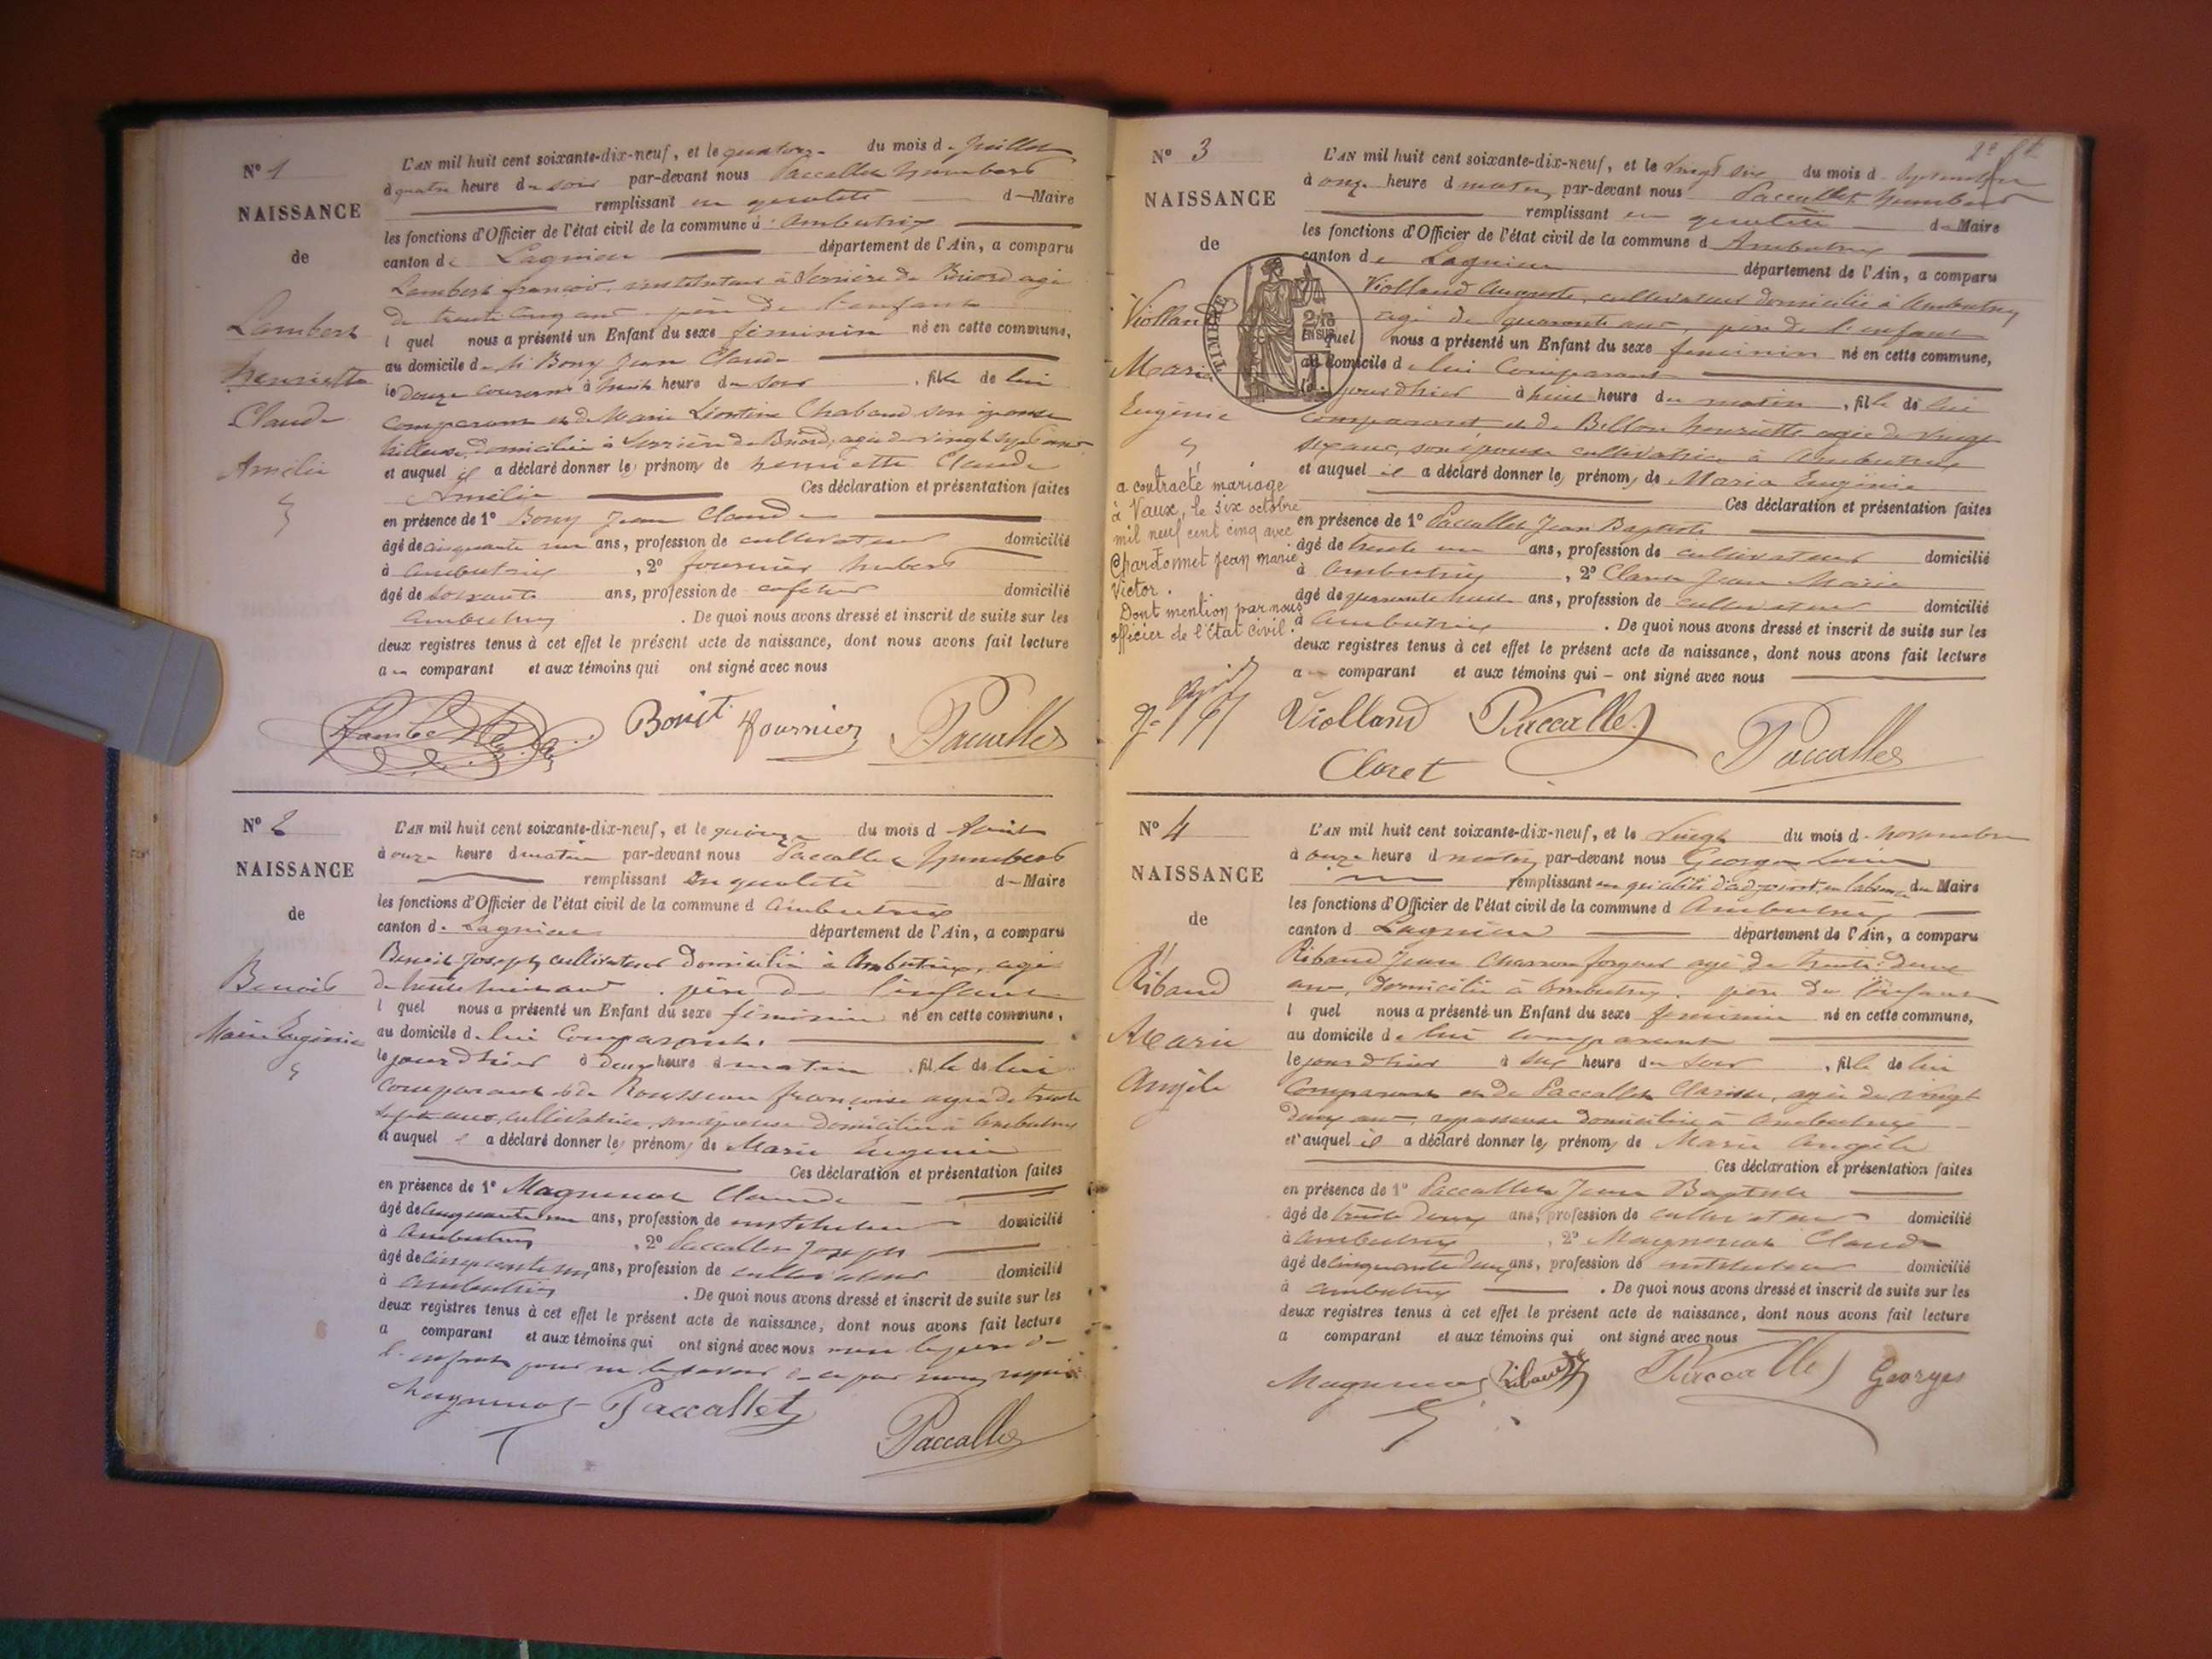 Nº 1
NAISSANCE
de
Lambert
henriette
Claude
Amélie
L'AN mil huit cent soixante-dix-neuf, et le quatorze du mois d. Juillet
à quatre heure du soir par-devant nous Paccallet humbert
remplissant en qualité d Maire
les fonctions d'Officier de l'état civil de la commune d'Ambutrix
canton de Lagnieu département de l'Ain, a comparu
Lambert françois, instituteur à Serrière de Briord agé
de trente cinq ans père de l'enfant
l quel nous a présenté un Enfant du sexe féminin né en cette commune,
au domicile de Bony Jean Claude
le douze courant à huit heure du soir , fille de lui
comparant et de Marie Léontine Chabaud son épouse
tailleuse, domiciliée à Serrière de Briord, agée de vingt sept ans
et auquel il a déclaré donner les prénoms de henriette Claude
Amélie Ces déclaration et présentation faites
en présence de 1º Bony Jean Claude
âgé de cinquante un ans, profession de cultivateur domicilié
à Ambutrix , 2º fournier hubert
âgé de soixante ans, profession de cafetier domicilié
Ambutrix . De quoi nous avons dressé et inscrit de suite sur les
deux registres tenus à cet effet le présent acte de naissance, dont nous avons fait lecture
au comparant et aux témoins qui ont signé avec nous
Fournier Paccallet
Nº 2
NAISSANCE
de
Benoit
Marie Eugénie
L'AN mil huit cent soixante-dix-neuf, et le quinze du mois d Août
à onze heure d matin par-devant nous Paccallet humbert
remplissant en qualité d Maire
les fonctions d'Officier de l'état civil de la commune d Ambutrix
canton de Lagnieu département de l'Ain, a comparu
Benoit Joseph, cultivateur domicilié à Ambutrix, agé
de trente huit ans . père de l'enfant
l quel nous a présenté un Enfant du sexe féminin né en cette commune,
au domicile de lui Comparant.
le jour d'hier à deux heure d matin . fille de lui
comparant et de Rousseau françoise agée de trente
sept ans, cultivatrice, domiciliée à Ambutrix
et auquel il a déclaré donner les prénoms de Marie Eugénie
Ces déclaration et présentation faites
en présence de 1º Magnenot Claude
âgé de cinquante un ans, profession de instituteur domicilié
à Ambutrix , 2º Paccallet Joseph
âgé de cinquante ans, profession de cultivateur domicilié
à Ambutrix . De quoi nous avons dressé et inscrit de suite sur les
deux registres tenus à cet effet le présent acte de naissance, dont nous avons fait lecture
a comparant et aux témoins qui ont signé avec nous non le père de
l'enfant pour ne le savoir de ce par nous requis
Magnenot Paccallet
Paccallet
Nº 3
NAISSANCE
de
Violland
Maria
Eugénie
a contracté mariage
à Vaux, le six octobre
mil neuf cent cinq avec
Chardonnet Jean marie
Victor.
Dont mention par nous
officier de l'Etat civil.
TIMBRE
L'AN mil huit cent soixante-dix-neuf, et le vingt six du mois d. Septembre
à onze heure d matin par-devant nous Paccallet humbert
remplissant en qualité de Maire
les fonctions d'Officier de l'état civil de la commune d Ambutrix
canton de Lagnieu département de l'Ain, a comparu
Violland Auguste, cultivateur domicilié à Ambutrix
agé de quarante ans, père de l'enfant
lequel nous a présenté un Enfant du sexe féminin né en cette commune,
au domicile de lui Comparant
le jour d'hier à huit heure du matin , fille de lui
comparant et de Bellon henriette agée de vingt
six ans, son épouse cultivatrice à Ambutrix
et auquel il a déclaré donner les prénoms de Maria Eugénie
Ces déclaration et présentation faites
en présence de 1º Paccallet Jean Baptiste
âgé de trente un ans, profession de cultivateur domicilié
à Ambutrix , 2º Claret Jean Marie
âgé de quarante huit ans, profession de cultivateur domicilié
à Ambutrix . De quoi nous avons dressé et inscrit de suite sur les
deux registres tenus à cet effet le présent acte de naissance, dont nous avons fait lecture
au comparant et aux témoins qui – ont signé avec nous
Violland Paccallet
Claret Paccallet
Nº 4
NAISSANCE
de
Ribaud
Marie
Angèle
L'AN mil huit cent soixante-dix-neuf, et le Vingt du mois d. novembre
à onze heure d matin par-devant nous Georges Louis
remplissant en qualité d'adjoint en l'absence du Maire
les fonctions d'Officier de l'état civil de la commune d Ambutrix
canton d Lagnieu département de l'Ain, a comparu
Ribaud Jean Charron forgeur agé de trente deux
ans, domicilié à Ambutrix. père de l'enfant
l quel nous a présenté un Enfant du sexe féminin né en cette commune,
au domicile de lui comparant
le jour d'hier à six heure du soir , fille de lui
Comparant et de Paccallet Clarisse, agée de vingt
deux ans, repasseuse domiciliée à Ambutrix
et auquel il a déclaré donner les prénoms de Marie Angèle
Ces déclaration et présentation faites
en présence de 1º Paccallet Jean Baptiste
âgé de trente deux ans, profession de cultivateur domicilié
à Ambutrix , 2º Magnenot Claude
âgé de cinquante deux ans, profession de instituteur domicilié
à Ambutrix . De quoi nous avons dressé et inscrit de suite sur les
deux registres tenus à cet effet le présent acte de naissance, dont nous avons fait lecture
a comparant et aux témoins qui ont signé avec nous
Magnenot Ribaud Paccallet Georges